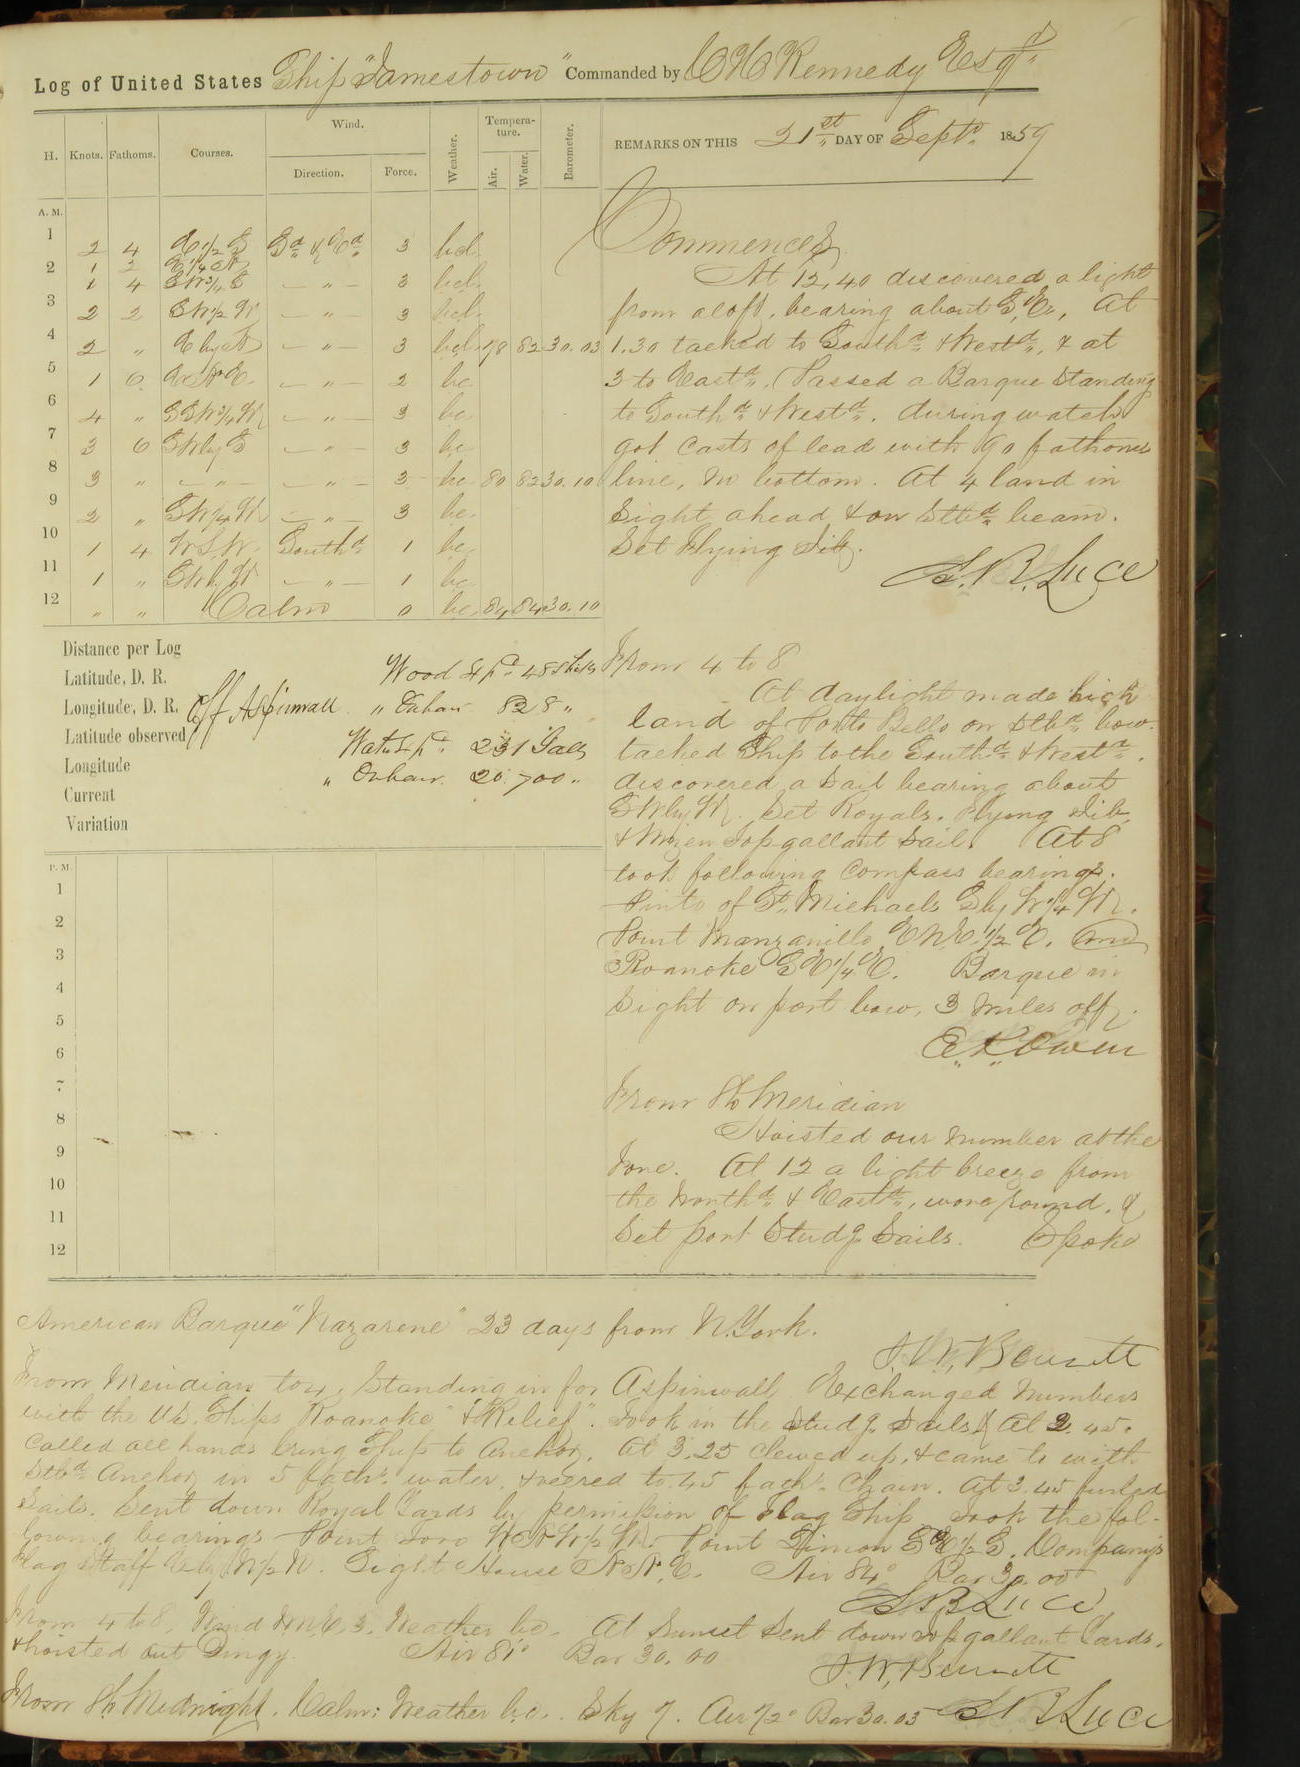 Log of United States Ship "Jamestown" Commanded by C H Kennedy Esqr
H. Knots. Fathoms. Courses. Wind. Direction. Force. Weather. Tempera-ture. Air. Water. Barometer.
REMARKS ON THIS 21st DAY OF Septr. 1859
A. M.
1 2 4 E 1/2 S Sd & Ed 3 bcl
1 2 E 1/4 N
2 1 4 SW 3/4 S — " — 3 bcl
3 2 2 SW 1/2 W — " — 3 bcl
4 2 " E by N — " — 3 bcl 78 82 30.03
5 1 6 ENE — " — 2 bc
6 4 " SSW 3/4 W — " — 3 bc
7 3 6 SW by S — " — 3 bc
8 3 " — " — — " — 3 bc 80 82 30.10
9 2 " SW 1/4 W — " — 3 bc
10 1 4 W.S.W. Southd 1 bc
11 1 " SW by W — " — 1 bc
12 " " Calm 0 bc 84 84 30.10
Commences
At 12,40 discovered a light
from aloft, bearing about S.E., At
1.30 tacked to Southd & Westd, & at
3 to Eastd. Passed a Barque standing
to Southd & Westd. during watch
got casts of lead with 90 fathoms
line, no bottom. At 4 land in
sight ahead & on Stbd beam.
Set Flying Jib.
S. B. Luce
Distance per Log
Latitude, D. R.
Longitude, D. R.
Latitude observed
Longitude
Current
Variation
Off Aspinwall
Wood Expd 48 sticks
" On hand 828 "
Water Expd 231 Galls
" On hand 20,700 "
From 4 to 8
At daylight made high
land of Porto Bello on Stbd bow.
tacked Ship to the Southd & Westd.
discovered a sail bearing about
SW by W. Set Royals, Flying Jib,
& Mizen Topgallant Sail. At 8
took following compass bearings.
Point of St. Michaels S by W 1/4 W.
Point Manzanillo E N E 1/2 E. and
Roanoke S E 1/4 E. Barque in
sight on port bow, 3 miles off.
E. K. Owen
P. M.
1
2
3
4
5
6
7
8
9
10
11
12
From 8 to Meridian
Hoisted our number at the
Fore. At 12 a light breeze from
the Northd & Eastd, wore round, &
set port Studg Sails. Spoke
American Barque "Nazarene" 23 days from N. York.
J. W. Bennett
From Meridian to 4, Standing in for Aspinwall Exchanged Numbers
with the U.S. Ships "Roanoke" & "Relief". Took in the Studg Sails & At 2.45.
called all hands bring Ship to Anchor. At 3.25 clewed up, & came to with
Stbd Anchor in 5 fathms water, & veered to 45 fathms chain. At 3.45 furled
Sails. Sent down Royal Yards by permission of Flag Ship Took the fol-
lowing bearings Point Toro W N W 1/2 W. Point Limon S E 1/2 S. Company's
Flag Staff E by N 1/2 N. Light House N.N.E. Air 84° Bar 30.00
S B Luce
From 4 to 8, Wind N.N.E. 3. Weather bc. At Sunset sent down topgallant Yards.
& hoisted out Dingy. Air 81° Bar 30.00
J. W. Bennett
From 8 to Midnight. Calm; Weather b.c. Sky 7. Air 72° Bar 30.03 S B Luce